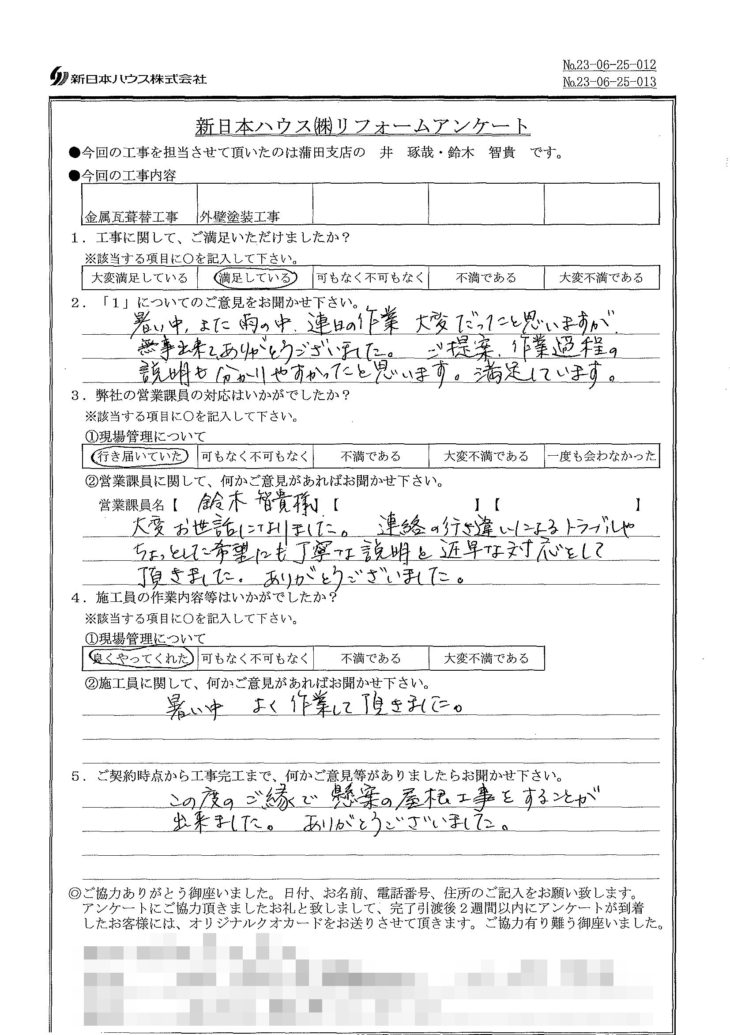 新日本ハウス株式会社
No.23-06-25-012
No.23-06-25-013
新日本ハウス㈱リフォームアンケート
●今回の工事を担当させて頂いたのは蒲田支店の 井 琢哉・鈴木 智貴 です。
●今回の工事内容
金属瓦葺替工事 外壁塗装工事
1．工事に関して、ご満足いただけましたか？
※該当する項目に○を記入して下さい。
大変満足している 満足している 可もなく不可もなく 不満である 大変不満である
2．「1」についてのご意見をお聞かせ下さい。
暑い中、また雨の中、連日の作業 大変だったこと思いますが、
無事出来てありがとうございました。 ご提案、作業過程の
説明も分かりやすかったと思います。満足しています。
3．弊社の営業課員の対応はいかがでしたか？
※該当する項目に○を記入して下さい。
①現場管理について
行き届いていた 可もなく不可もなく 不満である 大変不満である 一度も会わなかった
②営業課員に関して、何かご意見があればお聞かせ下さい。
営業課員名【 鈴木智貴様】【 】【 】
大変お世話になりました。 連絡の行き違いによるトラブルや
ちょっとした希望にも丁寧な説明と迅早な対応をして
頂きました。ありがとうございました。
4．施工員の作業内容等はいかがでしたか？
※該当する項目に○を記入して下さい。
①現場管理について
良くやってくれた 可もなく不可もなく 不満である 大変不満である
②施工員に関して、何かご意見があればお聞かせ下さい。
暑い中 よく作業して頂きました。
5．ご契約時点から工事完工まで、何かご意見等がありましたらお聞かせ下さい。
この度のご縁で懸案の屋根工事をすることが
出来ました。 ありがとうございました。
◎ご協力ありがとう御座いました。日付、お名前、電話番号、住所のご記入をお願い致します。
アンケートにご協力頂きましたお礼と致しまして、完了引渡後2週間以内にアンケートが到着
したお客様には、オリジナルクオカードをお送りさせて頂きます。ご協力有り難う御座いました。